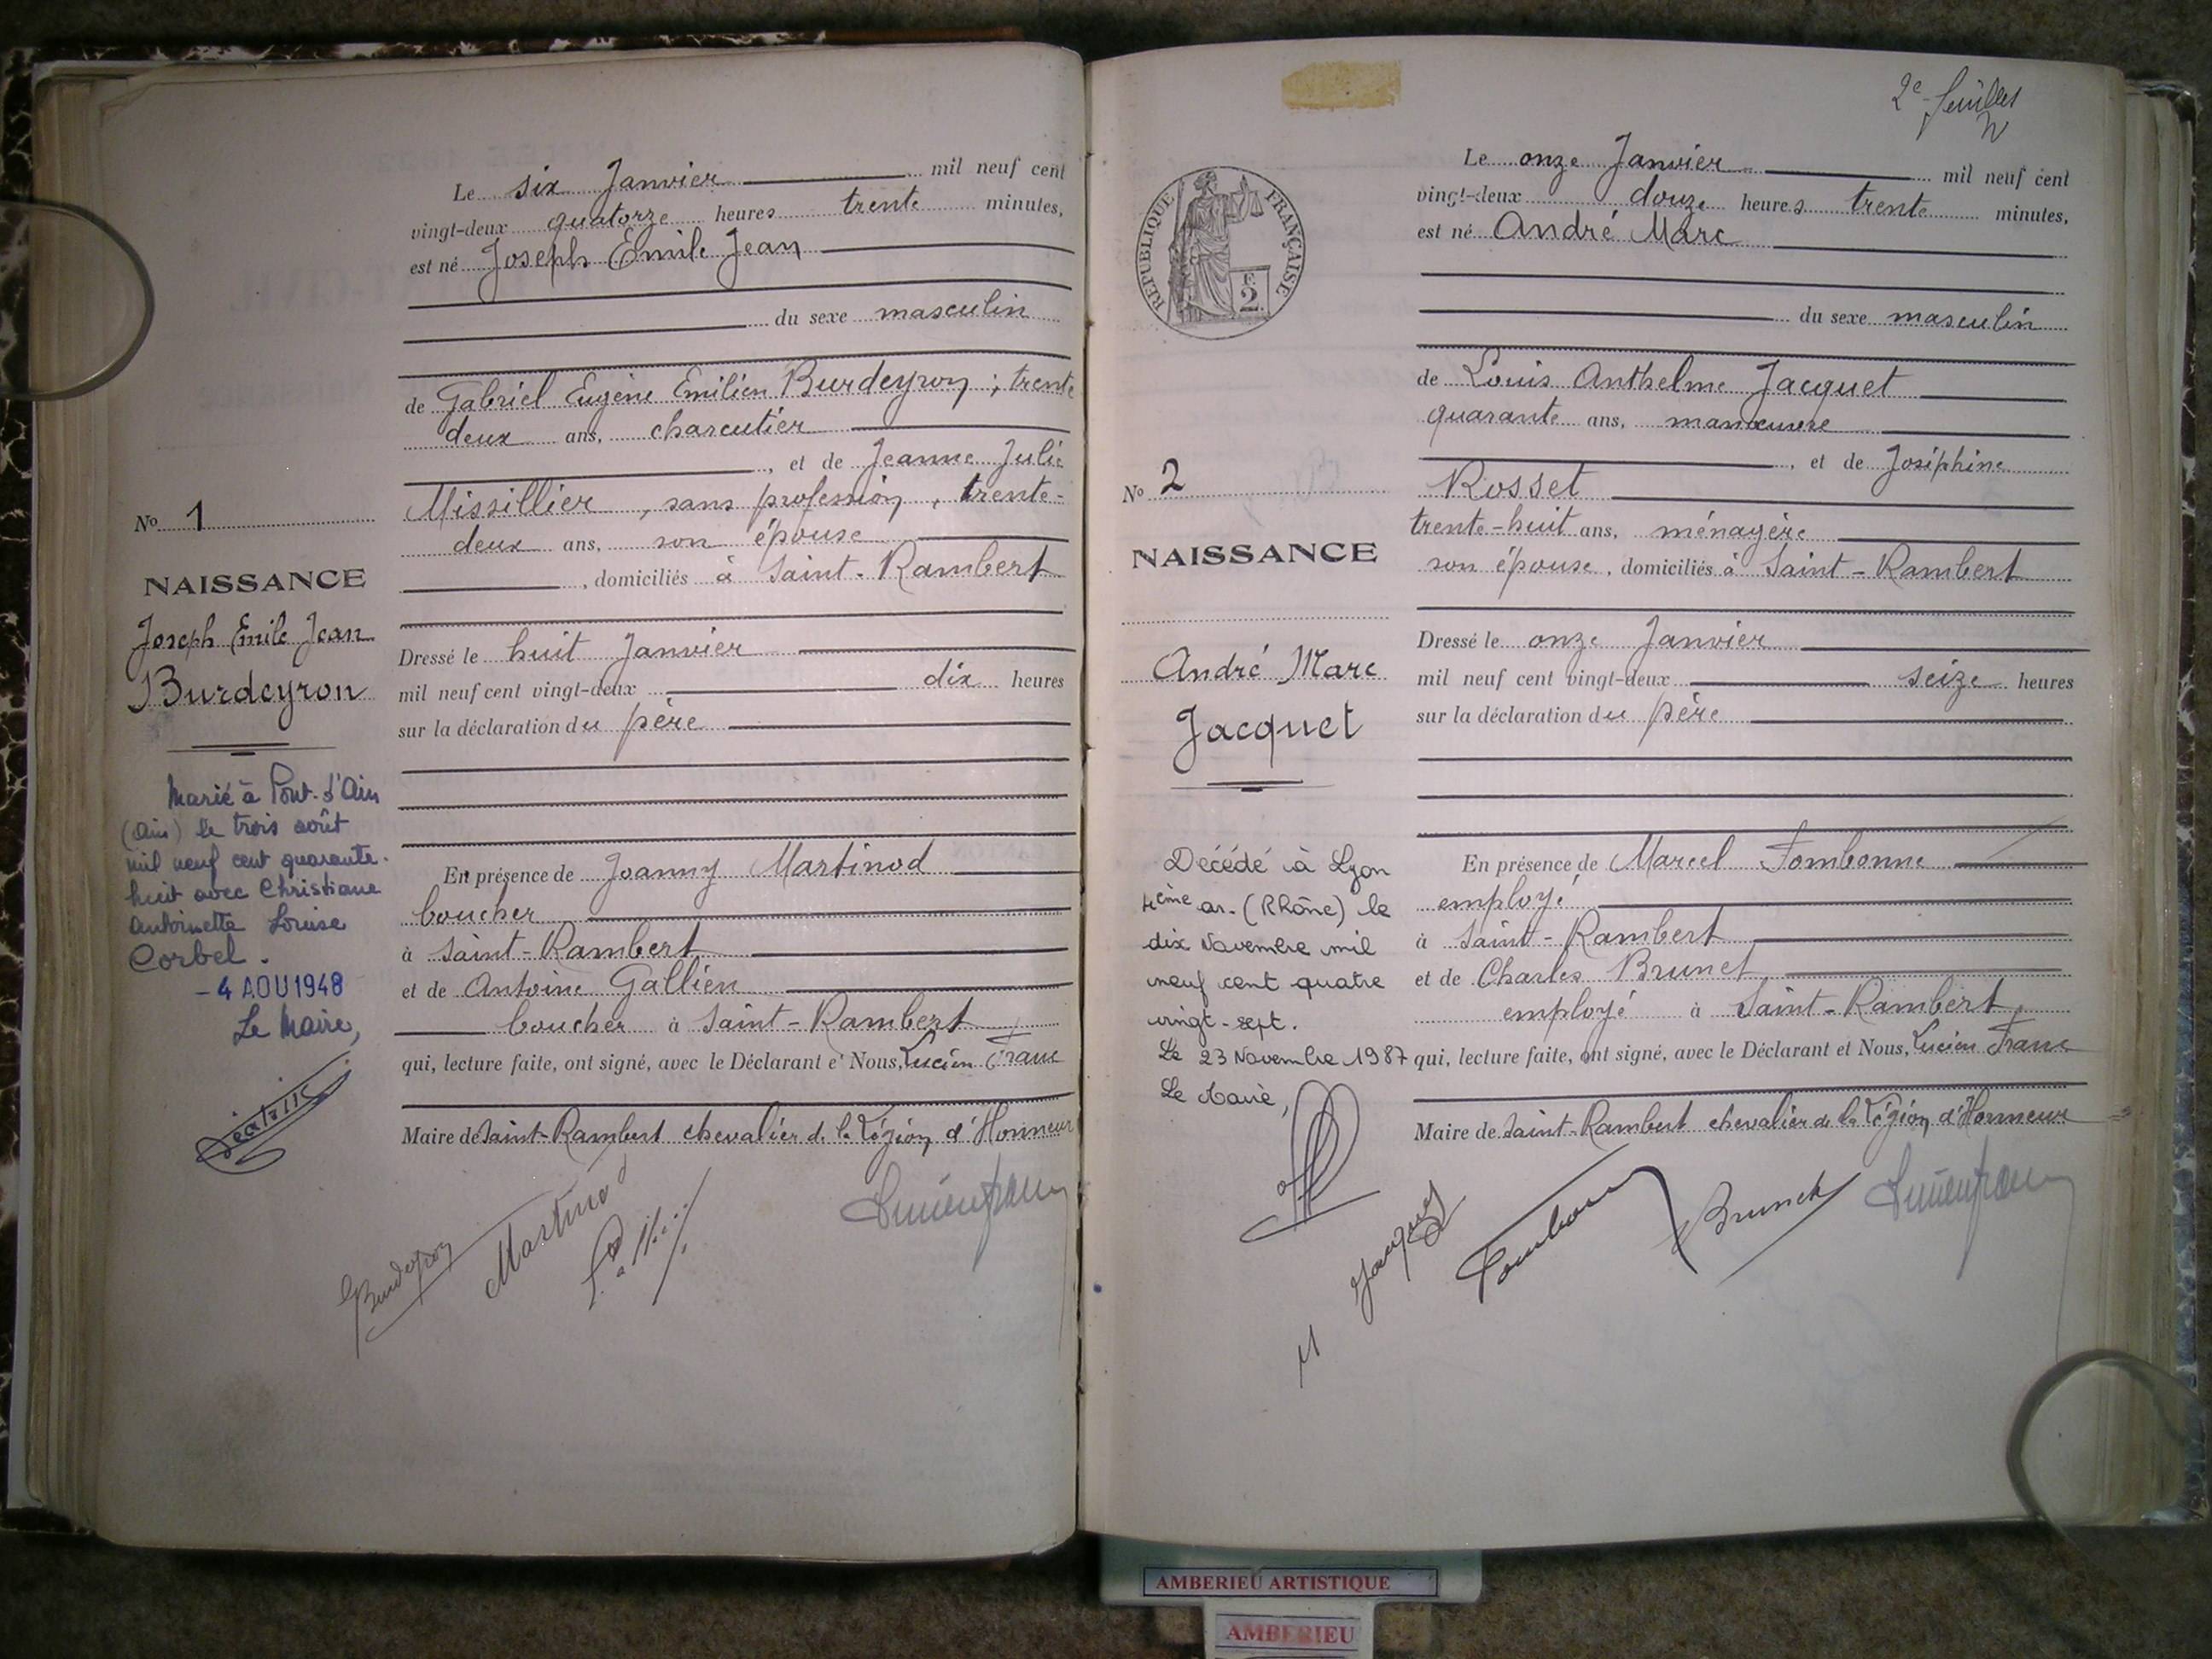 Le six Janvier mil neuf cent
vingt-deux quatorze heures trente minutes,
est né Joseph Emile Jean
du sexe masculin
de Gabriel Eugène Emilien Burdeyron ; trente
deux ans, charcutier
, et de Jeanne Julie
Missillier, sans profession, trente-
deux ans, son épouse
, domiciliés à Saint-Rambert
Dressé le huit Janvier
mil neuf cent vingt-deux dix heures
sur la déclaration du père
En présence de Joanny Martinod
boucher
à Saint-Rambert
et de Antoine Gallien
boucher à Saint-Rambert
qui, lecture faite, ont signé, avec le Déclarant et Nous, Lucien Franc
Maire de Saint-Rambert chevalier de la Légion d'Honneur
Burdeyron
Martinod
No 1
NAISSANCE
Joseph Emile Jean
Burdeyron
Marié à Pont-d'Ain
(Ain) le trois août
mil neuf cent quarante-
huit avec Christiane
Antoinette Louise
Corbel.
- 4 AOU 1948
Le Maire,
2e feuillet
REPUBLIQUE FRANÇAISE
2 F.
Le onze Janvier mil neuf cent
vingt-deux douze heures trente minutes,
est né André Marc
du sexe masculin
de Louis Anthelme Jacquet
quarante ans, manœuvre
, et de Joséphine
Rosset
trente-huit ans, ménagère
son épouse, domiciliés à Saint-Rambert
Dressé le onze Janvier
mil neuf cent vingt-deux seize heures
sur la déclaration du père
En présence de Marcel Fombonne
employé
à Saint-Rambert
et de Charles Brunet,
employé à Saint-Rambert
qui, lecture faite, ont signé, avec le Déclarant et Nous, Lucien Franc
Maire de Saint-Rambert chevalier de la Légion d'Honneur
Jacquet
No 2
NAISSANCE
André Marc
Jacquet
Décédé à Lyon
4ème ar. (Rhône) le
dix Novembre mil
neuf cent quatre
vingt-sept.
Le 23 Novembre 1987
Le Maire,
AMBERIEU ARTISTIQUE
AMBERIEU